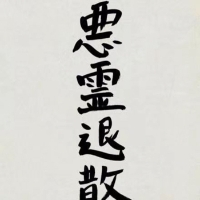 悪霊退散